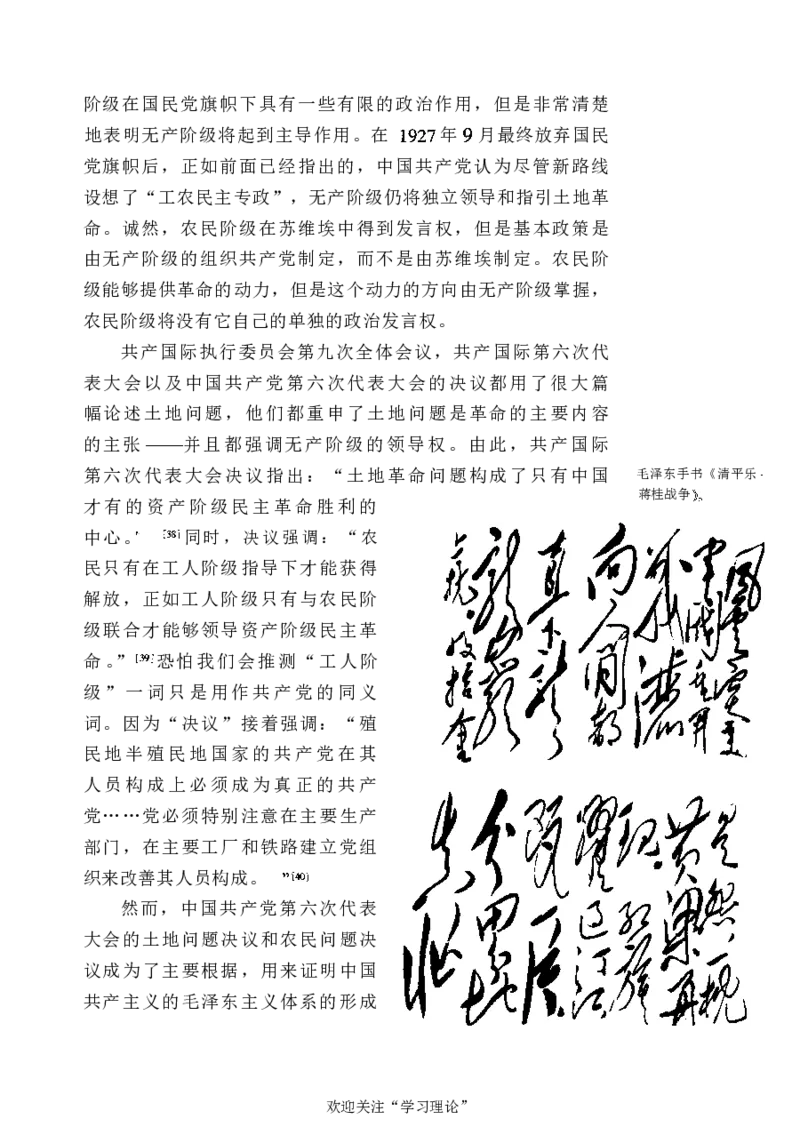 阶级在国民党旗帜下具有一些有限的政治作用，但是非常清楚
地表明无产阶级将起到主导作用。在 1927 年 9 月最终放弃国民
党旗帜后，正如前面已经指出的，中国共产党认为尽管新路线
设想了“工农民主专政”，无产阶级仍将独立领导和指引土地革
命。诚然，农民阶级在苏维埃中得到发言权，但是基本政策是
由无产阶级的组织共产党制定，而不是由苏维埃制定。农民阶
级能够提供革命的动力，但是这个动力的方向由无产阶级掌握，
农民阶级将没有它自己的单独的政治发言权。
共产国际执行委员会第九次全体会议，共产国际第六次代
表大会以及中国共产党第六次代表大会的决议都用了很大篇
幅论述土地问题，他们都重申了土地问题是革命的主要内容
的主张——并且都强调无产阶级的领导权。由此，共产国际
第六次代表大会决议指出：“土地革命问题构成了只有中国
才有的资产阶级民主革命胜利的
中心。’[38]同时，决议强调：“农
民只有在工人阶级指导下才能获得
解放，正如工人阶级只有与农民阶
级联合才能够领导资产阶级民主革
命。”[39]恐怕我们会推测“工人阶
级”一词只是用作共产党的同义
词。因为“决议”接着强调：“殖
民地半殖民地国家的共产党在其
人员构成上必须成为真正的共产
党……党必须特别注意在主要生产
部门，在主要工厂和铁路建立党组
织来改善其人员构成。 ”[40]
然而，中国共产党第六次代表
大会的土地问题决议和农民问题决
议成为了主要根据，用来证明中国
共产主义的毛泽东主义体系的形成
毛泽东手书《清平乐·
蒋桂战争》。
风云突变
军阀重开
战洒
向人间都
直下
龙岩
上杭收拾金
是怨一枕
黄粱再
现红旗
跃过汀江
瓯一片
分田分地
真忙
欢迎关注“学习理论”